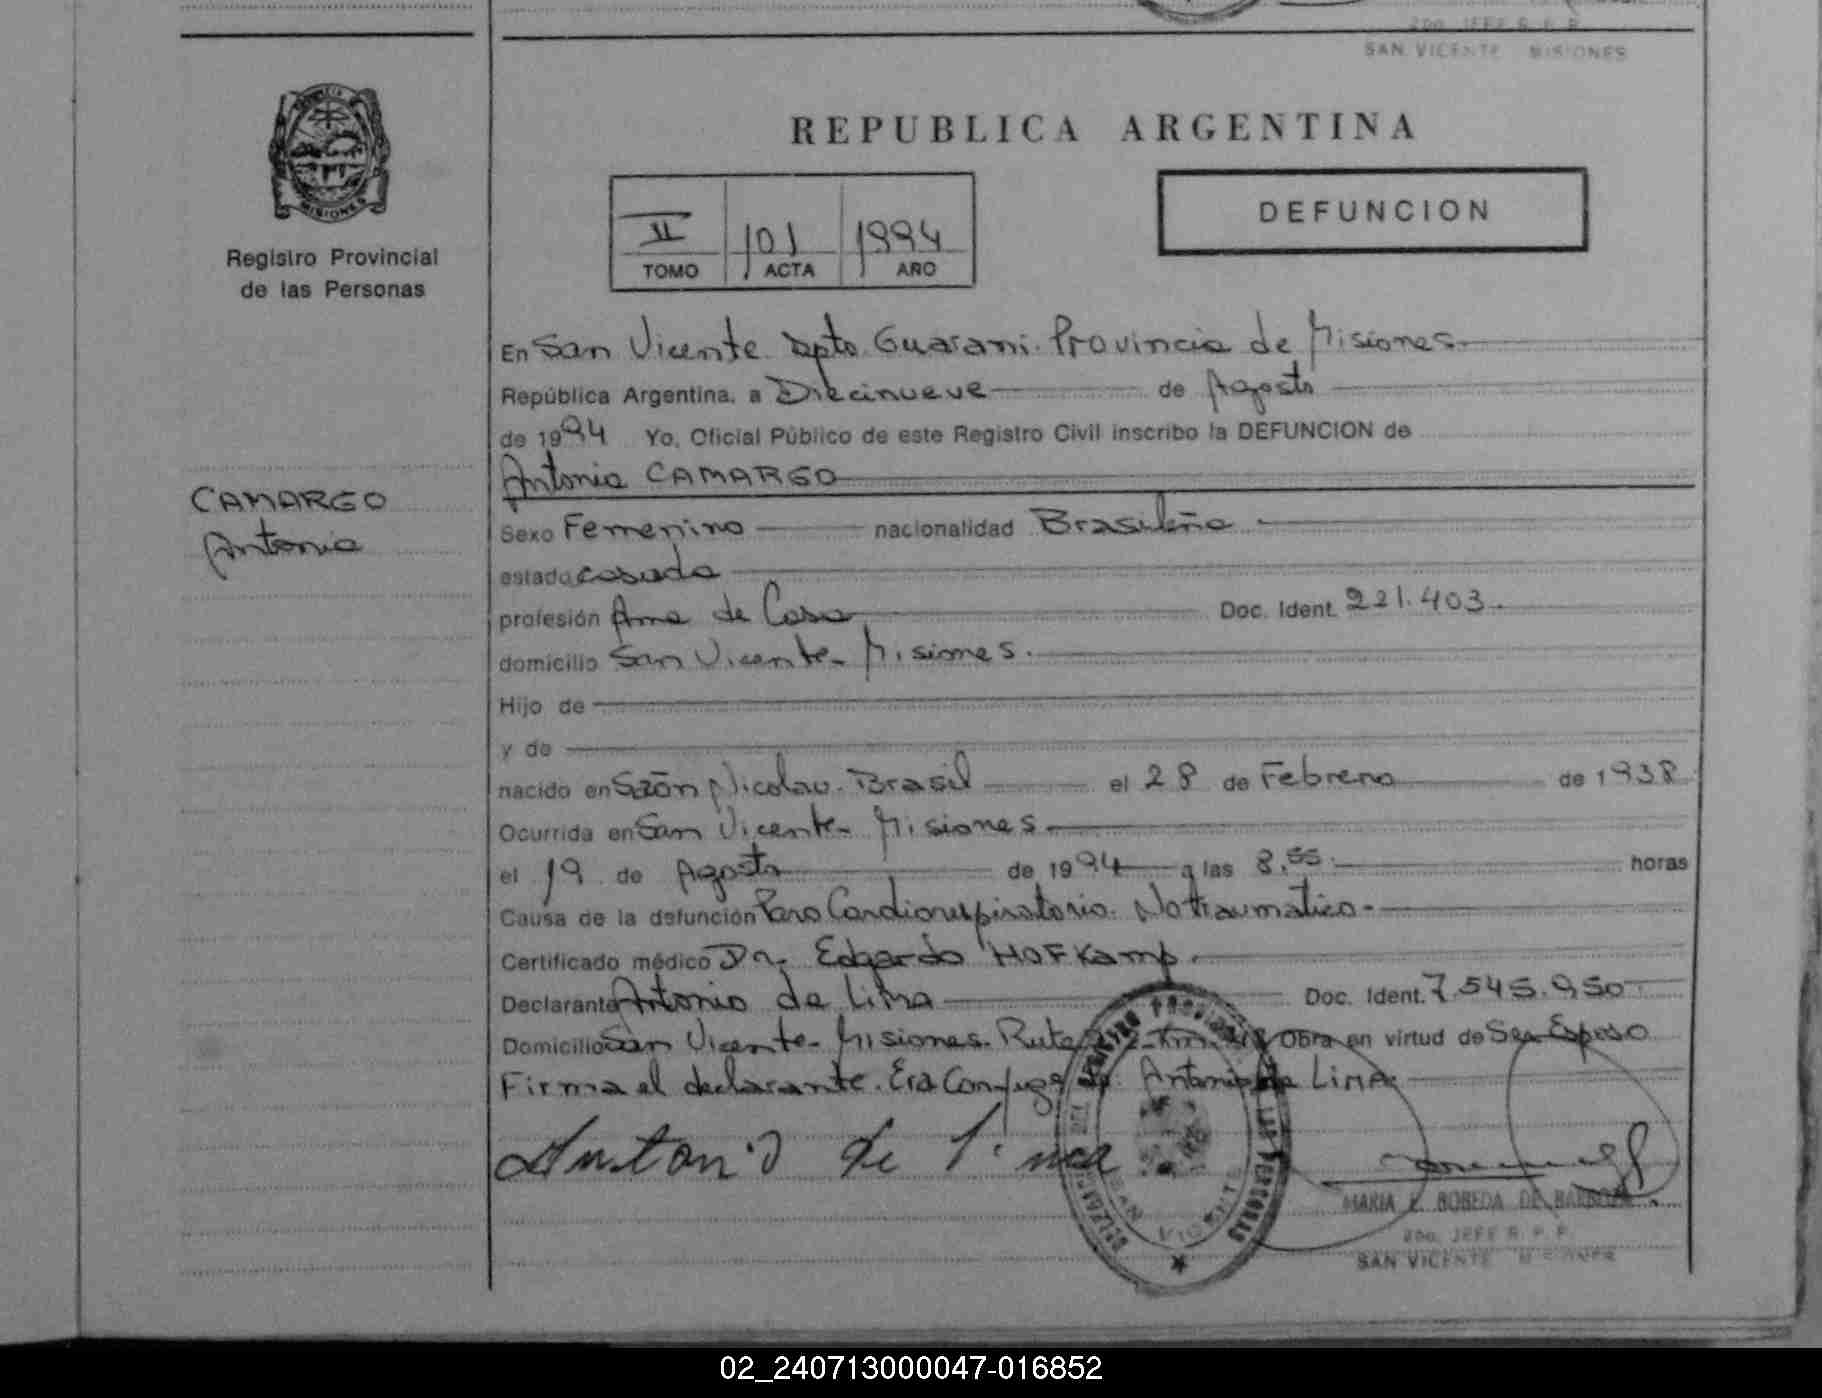 2do. JEFE R. P. P.
SAN VICENTE MISIONES
PROVINCIA DE
MISIONES
Registro Provincial
de las Personas
REPUBLICA ARGENTINA
II 101 1994
TOMO ACTA AÑO
DEFUNCION
En San Vicente Dpto. Guarani. Provincia de Misiones
República Argentina, a Diecinueve de Agosto
de 1994 Yo, Oficial Público de este Registro Civil inscribo la DEFUNCION de
Antonia CAMARGO
CAMARGO
Antonia
Sexo Femenino nacionalidad Brasileña
estado casada
profesión Ama de Casa Doc. Ident. 221.403.
domicilio San Vicente - Misiones.
Hijo de
y de
nacido en Saõn Nicolau. Brasil el 28 de Febrero de 1938
Ocurrida en San Vicente - Misiones
el 19 de Agosto de 1994 a las 8,55 horas
Causa de la defunción Paro Cardiorespiratorio. No traumatico -
Certificado médico Dr. Edgardo HOFKamp.
Declarante Antonio de Lima Doc. Ident. 7.545.950
Domicilio San Vicente - Misiones. Ruta Km. Obra en virtud de Ser Esposo
Firma el declarante. Era Conyuge de Antonio de LIMA
Antonio de Lima
REGISTRO PROVINCIAL DE LAS PERSONAS
DELEGACION
SAN VICENTE
MARIA E. BOBEDA DE BARBOZA
2do. JEFE R. P. P.
SAN VICENTE MISIONES
02_240713000047-016852